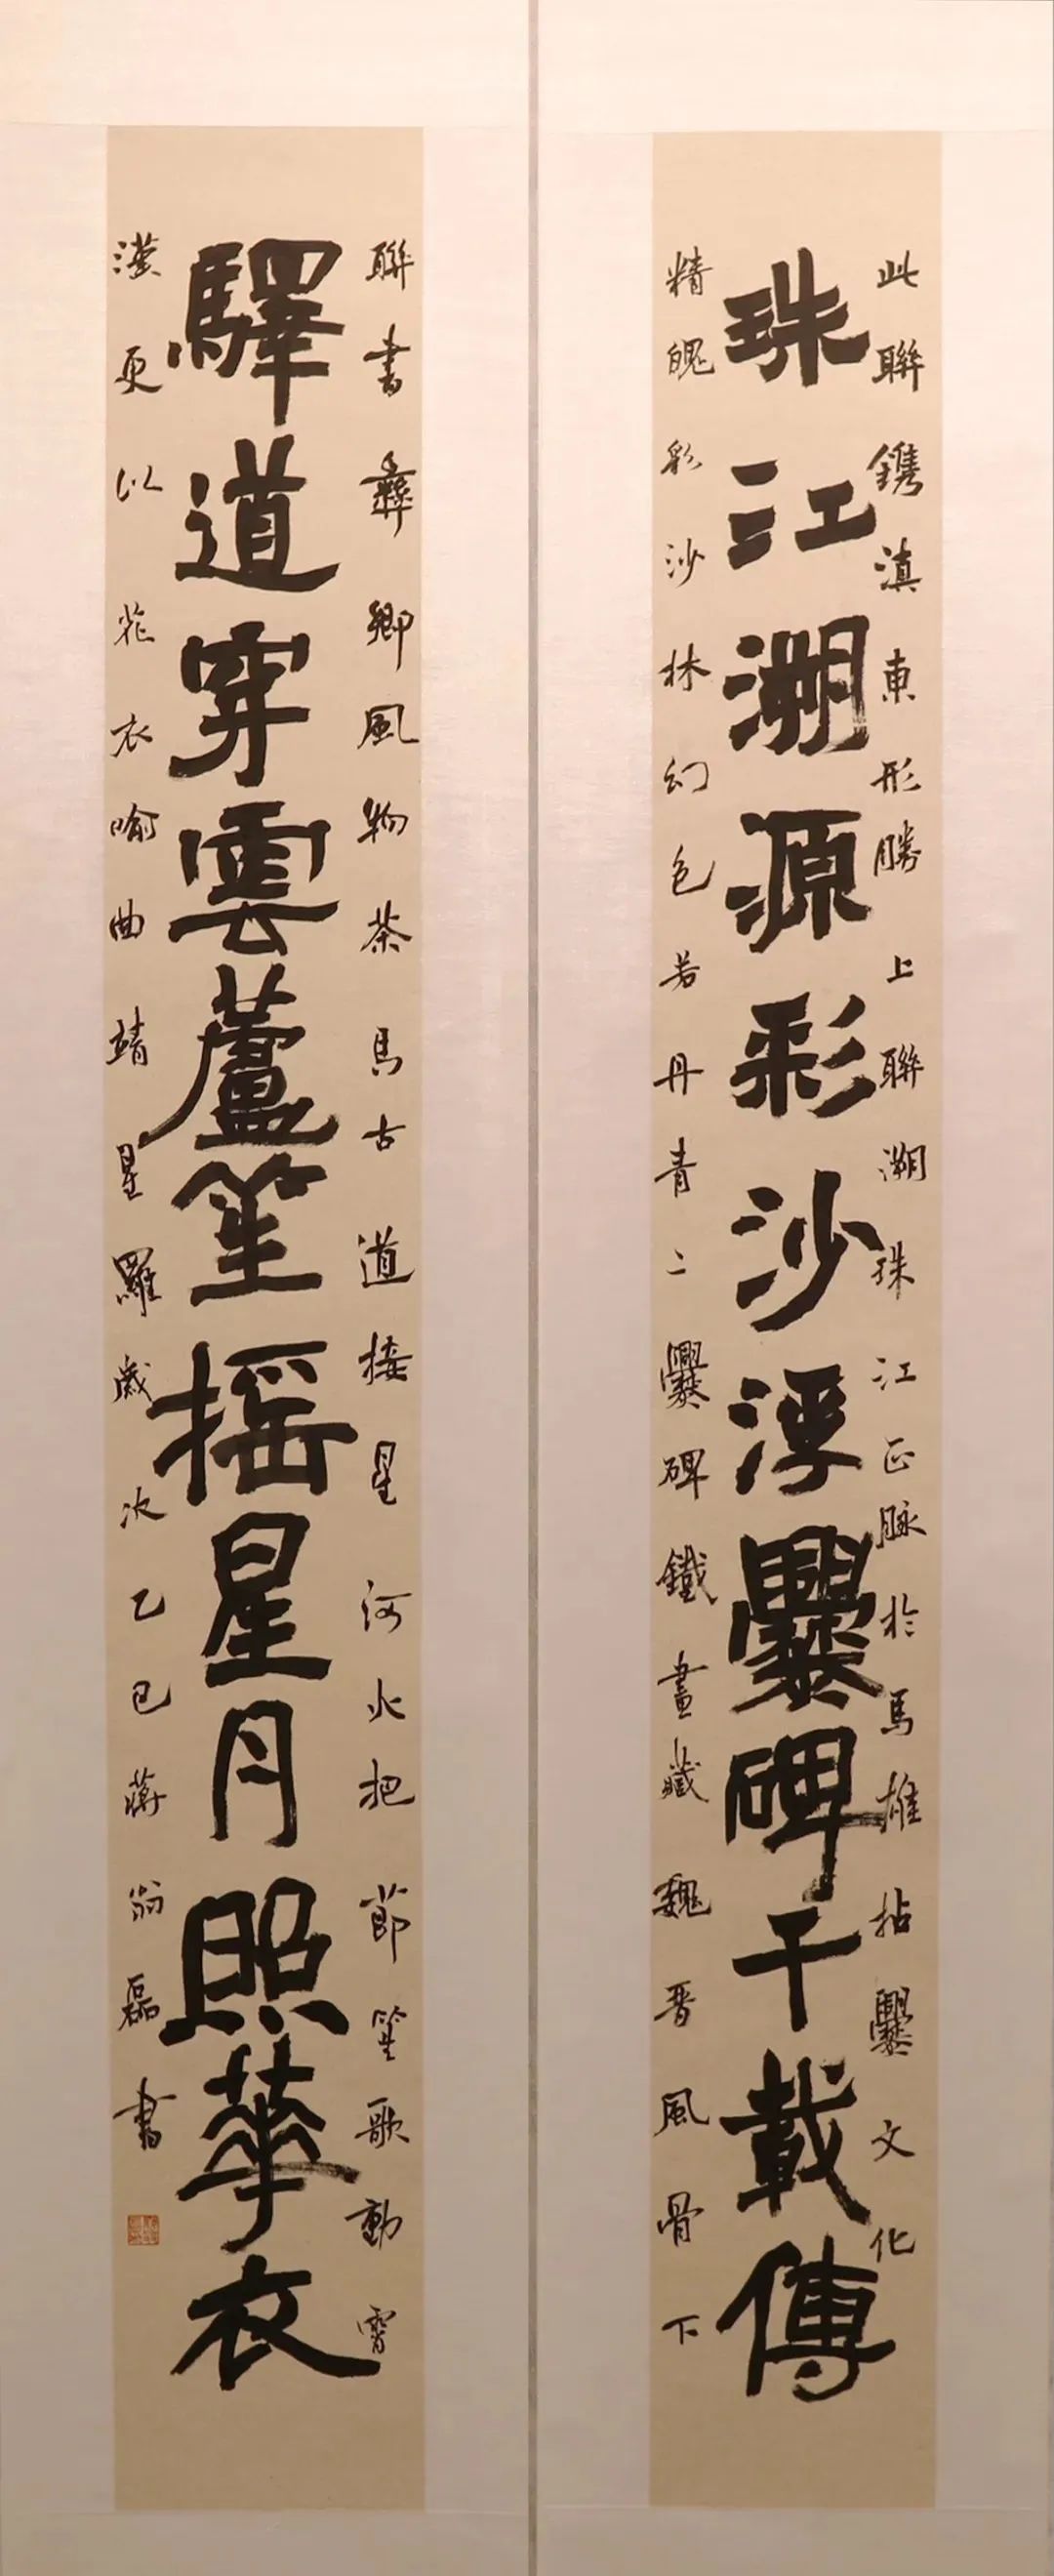 此聯鐫滇東形勝上聯溯珠江正脉於馬雄拈爨文化
珠江溯源彩沙浮爨碑千載傳
精魄彩沙林幻色若丹青二爨碑鐵畫藏魏晋風骨下
聯書彝鄉風物茶馬古道接星河火把節笙歌動霄
驛道穿雲蘆笙摇星月照華衣
漢更以衣喻曲靖星羅歲次乙巳蔣翁磊書